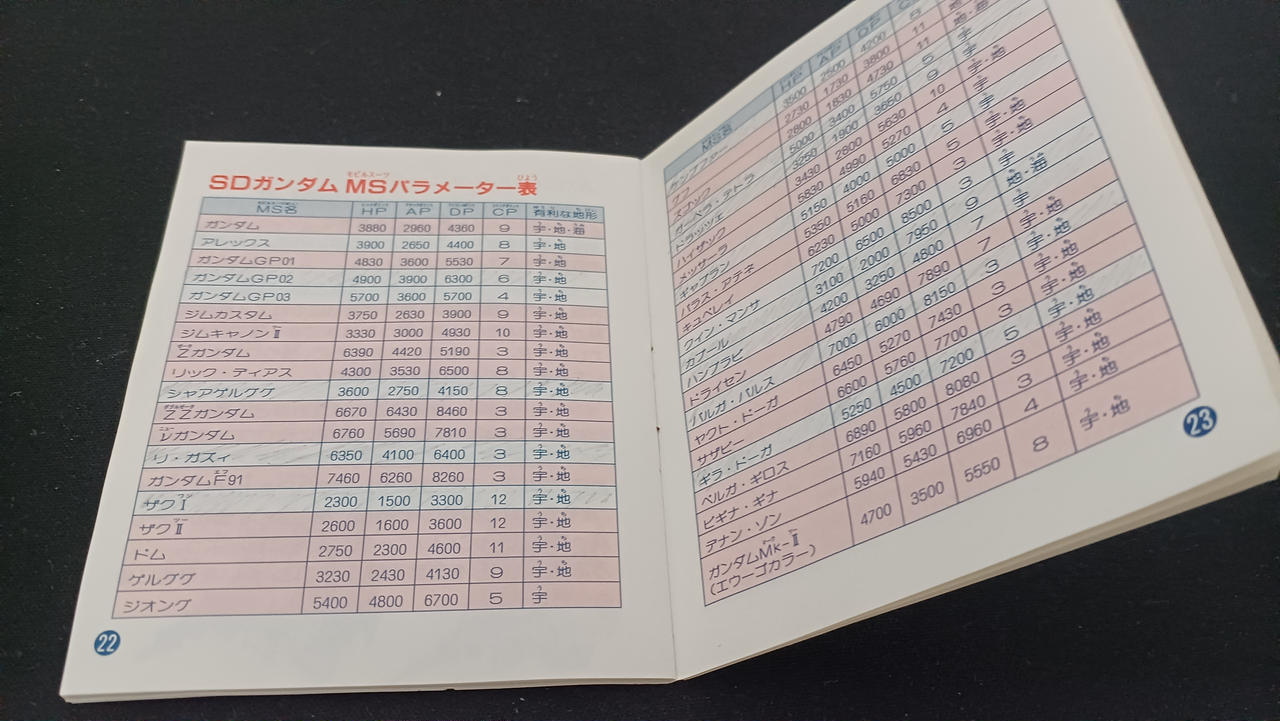 SDガンダム MSパラメーター表
MS名 HP AP DP CP 有利な地形
ガンダム 3880 2960 4360 9 宇・地・海
アレックス 3900 2650 4400 8 宇・地
ガンダムGP01 4830 3600 5530 7 宇・地
ガンダムGP02 4900 3900 6300 6 宇・地
ガンダムGP03 5700 3600 5700 4 宇・地
ジムカスタム 3750 2630 3900 9 宇・地
ジムキャノンⅡ 3330 3000 4930 10 宇・地
Zガンダム 6390 4420 5190 3 宇・地
リック・ディアス 4300 3530 6500 8 宇・地
シャアゲルググ 3600 2750 4150 8 宇・地
ZZガンダム 6670 6430 8460 3 宇・地
νガンダム 6760 5690 7810 3 宇・地
リ・ガズィ 6350 4100 6400 3 宇・地
ガンダムF91 7460 6260 8260 3 宇・地
ザクⅠ 2300 1500 3300 12 宇・地
ザクⅡ 2600 1600 3600 12 宇・地
ドム 2750 2300 4600 11 宇・地
ゲルググ 3230 2430 4130 9 宇・地
ジオング 5400 4800 6700 5 宇
22
MS名 HP AP DP
ケンプファー 3500 2500 4200
2730 1730 3800 11
ズゴック 2800 1830 4730 11 地・海
ガーベラ・テトラ 5000 3400 5750 5 宇
ドラッツェ 3250 1900 3650 9
ハイザック 3430 2800 5630 10 宇・地
メッサーラ 5830 4990 5270 4 宇
ギャプラン 5150 4000 5000 5
パラス・アテネ 5350 5160 6830 5
キュベレイ 6230 5000 7300 3 宇・地
クィン・マンサ 7200 6500 8500 3 宇
カプール 3100 2000 7950 9 地・海
ハンブラビ 4200 3250 4800 7 宇・地
ドライセン 4790 4690 7890 7 宇・地
バルガ・バルス 7000 6000 8150 3 宇・地
ヤクト・ドーガ 6450 5270 7430 3 宇・地
サザビー 6600 5760 7700 3 宇・地
ギラ・ドーガ 5250 4500 7200 5 宇・地
ベルガ・ギロス 6890 5800 8080 3 宇・地
ビギナ・ギナ 7160 5960 7840 3 宇・地
アナン・ゾン 5940 5430 6960 4 宇・地
ガンダムMk-Ⅱ
(エウーゴカラー) 4700 3500 5550 8 宇・地
23